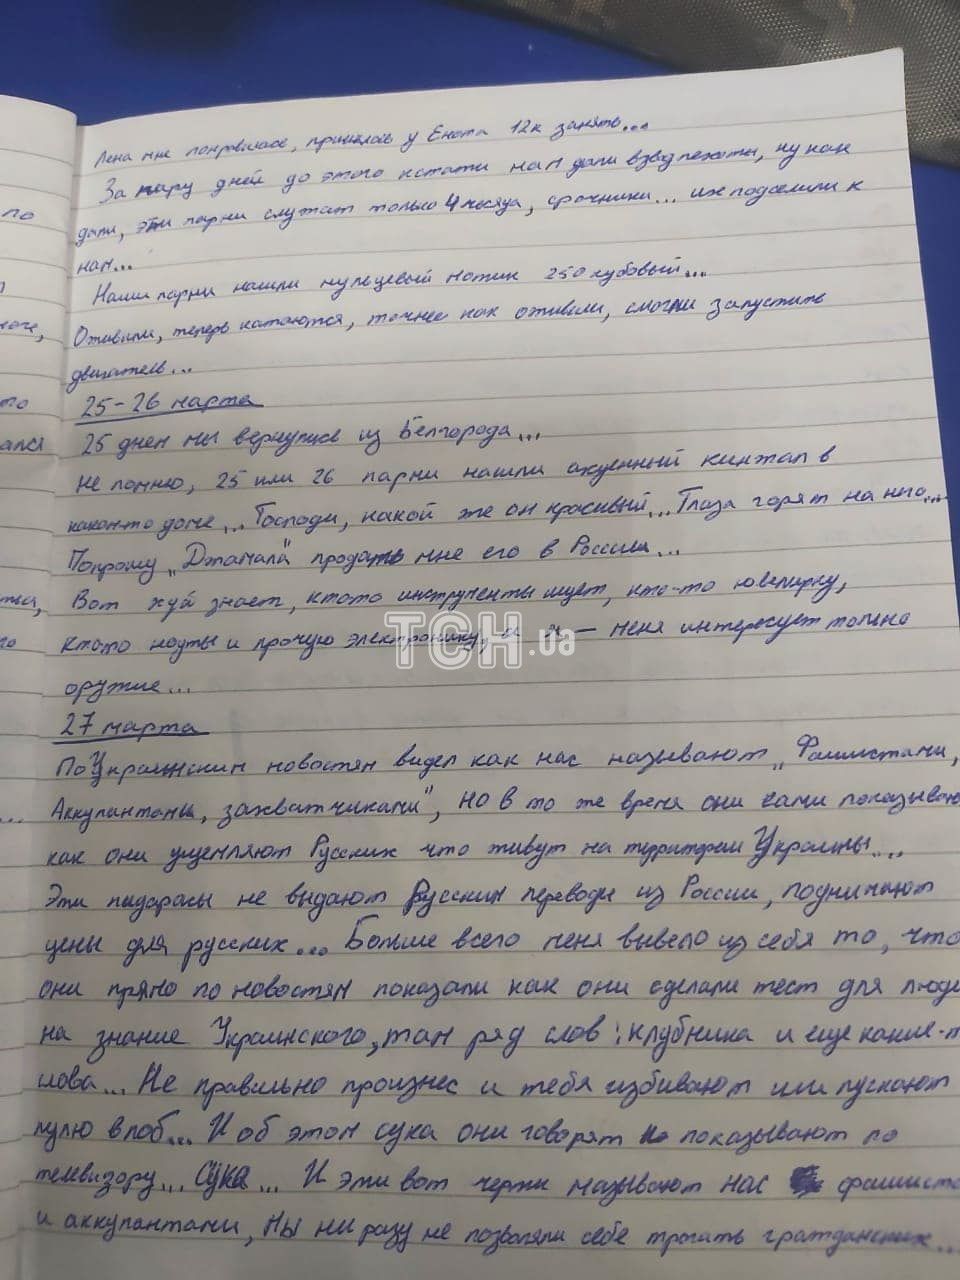 Лена мне понравилась, пришлось у Енота 12к занять...
За пару дней до этого кстати нам дали взвод пехоты, ну как
дали, эти парни служат только 4 месяца, срочники... их подселили к
нам...
Наши парни нашли нульцевый мотик 250 кубовый...
Оживили, теперь катаются, точнее как оживили, смогли запустить
двигатель...
25-26 марта
25 днем мы вернулись из Белгорода...
по
Не помню, 25 или 26 парни нашли ахуенный кинжал в
каком-то доме... Господи, какой же он красивый... Глаза горят на него...
Попрошу „Джамала" продать мне его в России...
Вот хуй знает, ктото инструменты ищет, кто-то ювелирку,
ктото ноуты и прочую электронику, а я — меня интересует только
оружие...
ТСН.ua
27 марта
По Украинским новостям видел как нас называют „Фашистами,
Аккупантами, захватчиками", но в то же время они сами показываю
как они ущемляют Русских что живут на территории Украины...
Эти пидарасы не выдают Русским переводы из России, поднимают
цены для русских... Больше всего меня вывело из себя то, что
они прямо по новостям показали как они сделали тест для люде
на знание Украинского, там ряд слов: клубника и еще какие-т
слова... Не правильно произнес и тебя избивают или пускают
пулю в лоб... И об этом сука они говорят показывают по
телевизору... Сука... И эти вот черти называют нас фашиста
и аккупантами, мы ни разу не позволяли себе трогать гражданских...